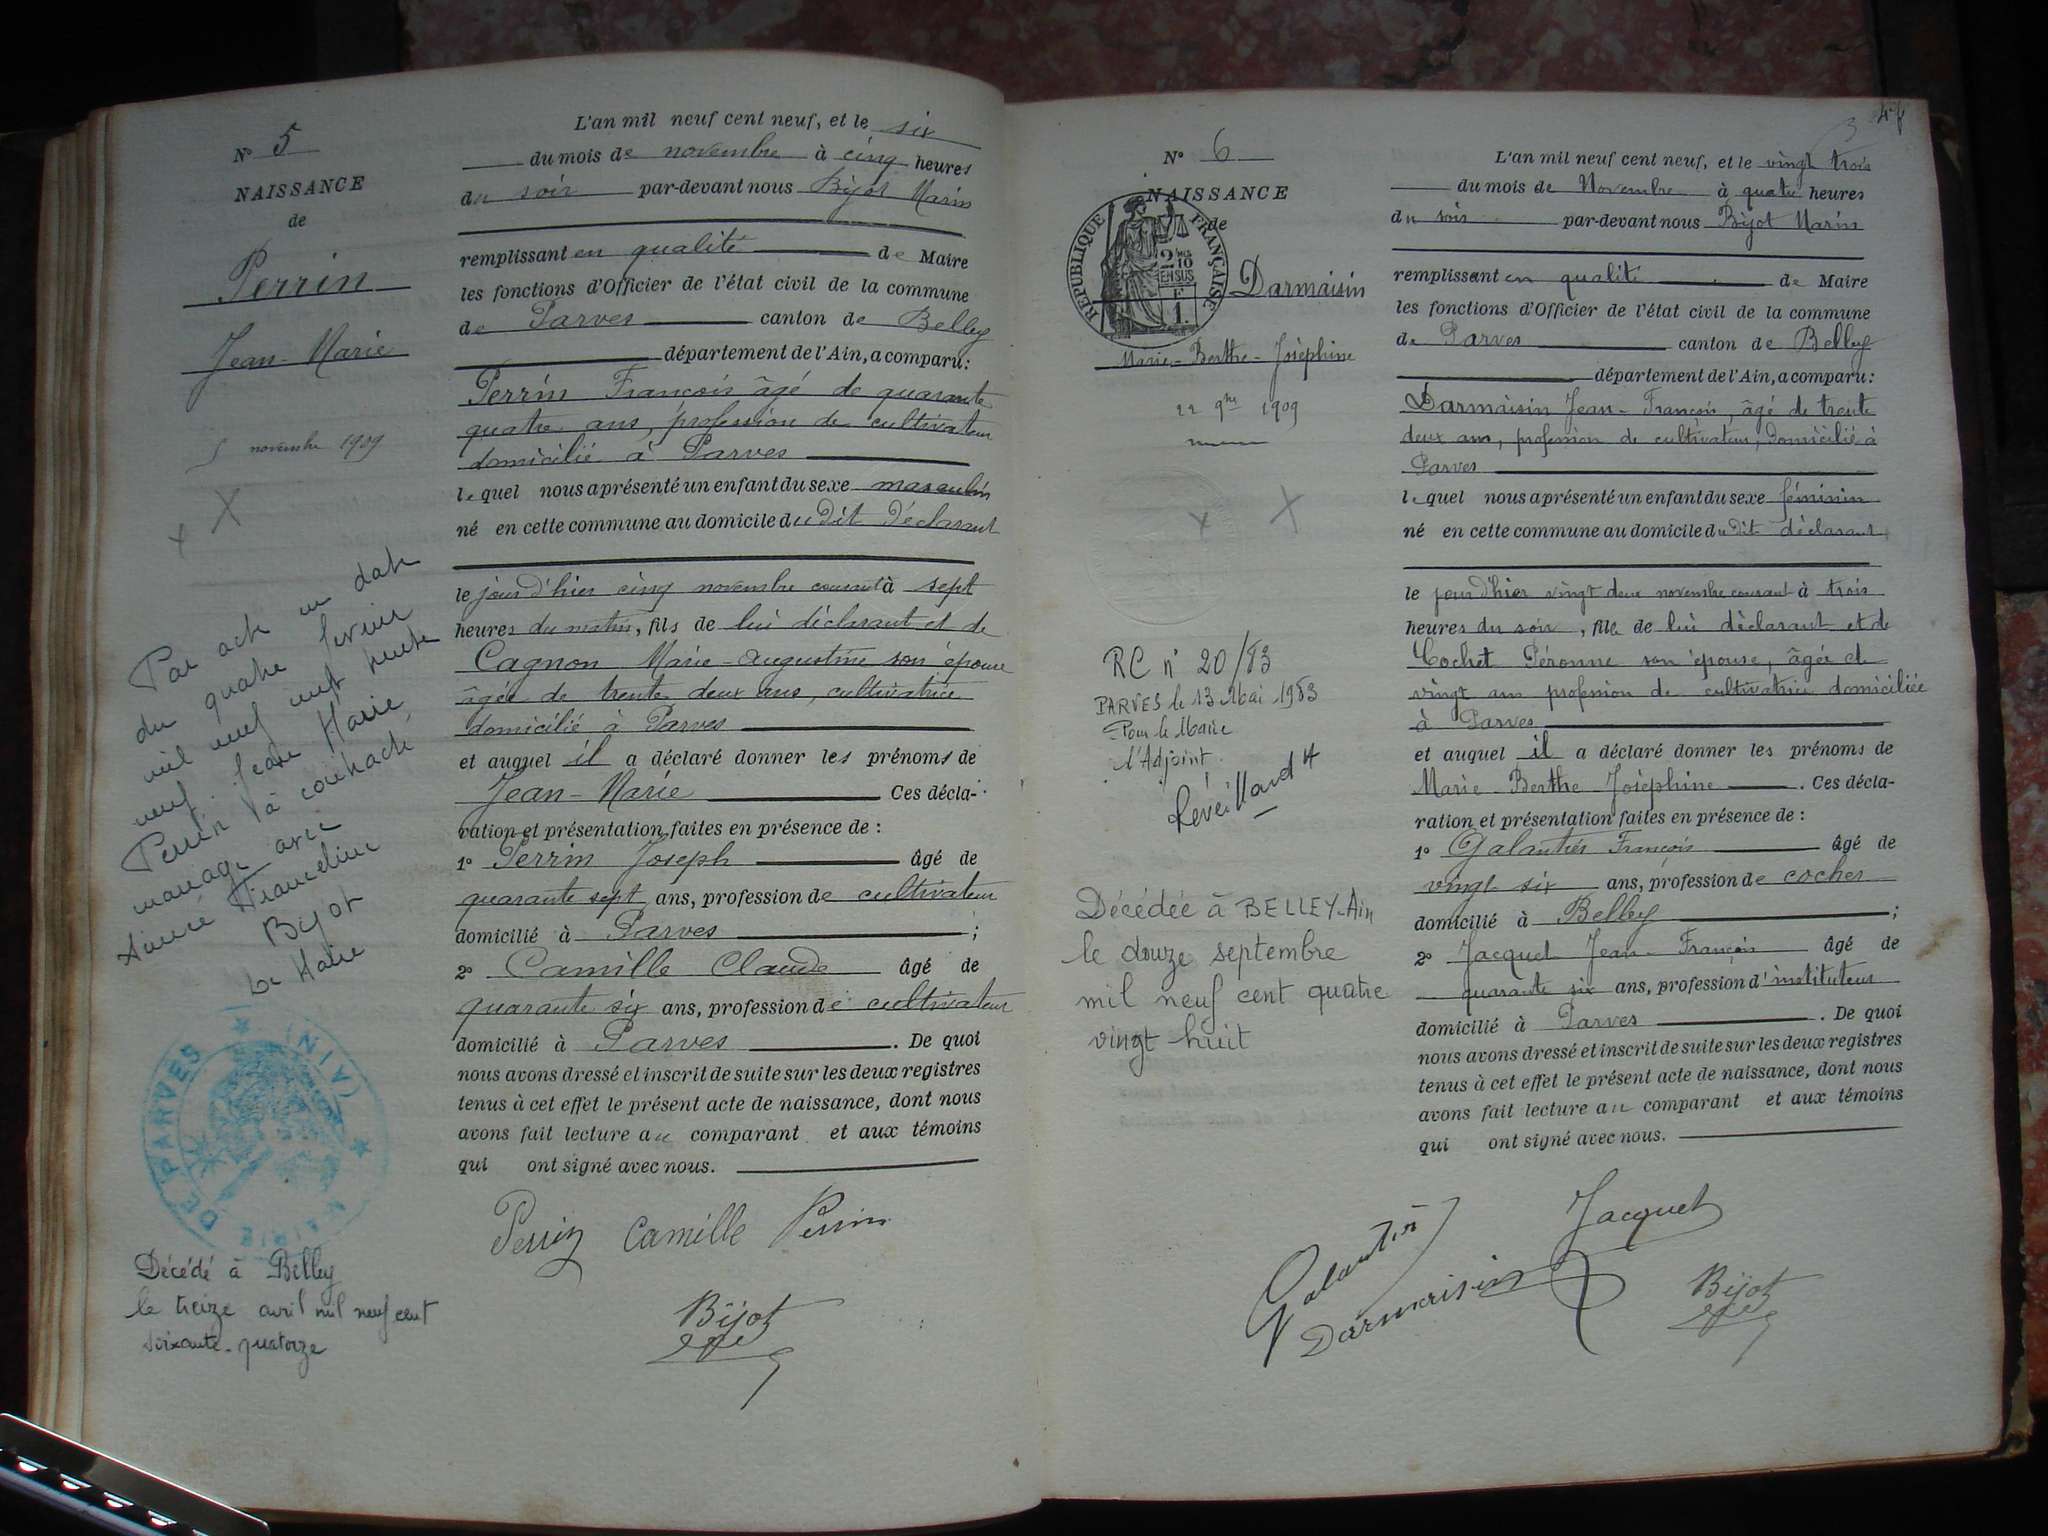 N° 5
NAISSANCE
de
Perrin
Jean-Marie
5 novembre 1909
Par acte en date
du quatre février
mil neuf cent trente
neuf. Jean Marie
Perrin a contracté
mariage avec
Aimée Franceline
Bijot
Le Maire
MAIRIE DE PARVES (AIN)
Décédé à Belley
le treize avril mil neuf cent
soixante-quatorze
L'an mil neuf cent neuf, et le six
du mois de novembre à cinq heures
du soir par-devant nous Bijot Marin
remplissant en qualité de Maire
les fonctions d'Officier de l'état civil de la commune
de Parves canton de Belley
département de l'Ain, a comparu:
Perrin François âgé de quarante
quatre ans, profession de cultivateur
domicilié à Parves
lequel nous a présenté un enfant du sexe masculin
né en cette commune au domicile du dit déclarant
le jour d'hier cinq novembre courant à sept
heures du matin, fils de lui déclarant et de
Cagnon Marie-Augustine son épouse
âgée de trente deux ans, cultivatrice
domicilié à Parves
et auquel il a déclaré donner les prénoms de
Jean-Marie Ces décla-
ration et présentation faites en présence de :
1° Perrin Joseph âgé de
quarante sept ans, profession de cultivateur
domicilié à Parves ;
2° Camille Claude âgé de
quarante six ans, profession de cultivateur
domicilié à Parves . De quoi
nous avons dressé et inscrit de suite sur les deux registres
tenus à cet effet le présent acte de naissance, dont nous
avons fait lecture au comparant et aux témoins
qui ont signé avec nous.
Perrin Camille Perrin
Bijot
N° 6
NAISSANCE
de
RÉPUBLIQUE FRANÇAISE
2/10
EN SUS
F
1.
Darmaisin
Marie-Berthe-Joséphine
22 9bre 1909
RC n° 20/83
PARVES le 13 Mai 1983
Pour le Maire
l'Adjoint.
Reveillard
Décédée à BELLEY-Ain
le douze septembre
mil neuf cent quatre
vingt huit
L'an mil neuf cent neuf, et le vingt trois
du mois de Novembre à quatre heures
du soir par-devant nous Bijot Marin
remplissant en qualité de Maire
les fonctions d'Officier de l'état civil de la commune
de Parves canton de Belley
département de l'Ain, a comparu:
Darmaisin Jean-François, âgé de trente
deux ans, profession de cultivateur, domicilié à
Parves
lequel nous a présenté un enfant du sexe féminin
né en cette commune au domicile du dit déclarant
le jour d'hier vingt deux novembre courant à trois
heures du soir, fille de lui déclarant et de
Cochet Péronne son épouse, âgée de
vingt ans profession de cultivatrice domiciliée
à Parves
et auquel il a déclaré donner les prénoms de
Marie-Berthe Joséphine . Ces décla-
ration et présentation faites en présence de :
1° François âgé de
vingt six ans, profession de cocher
domicilié à Belley ;
2° Jacquet Jean-François âgé de
quarante six ans, profession d'instituteur
domicilié à Parves . De quoi
nous avons dressé et inscrit de suite sur les deux registres
tenus à cet effet le présent acte de naissance, dont nous
avons fait lecture au comparant et aux témoins
qui ont signé avec nous.
Jacquet
Darmaisin
Bijot